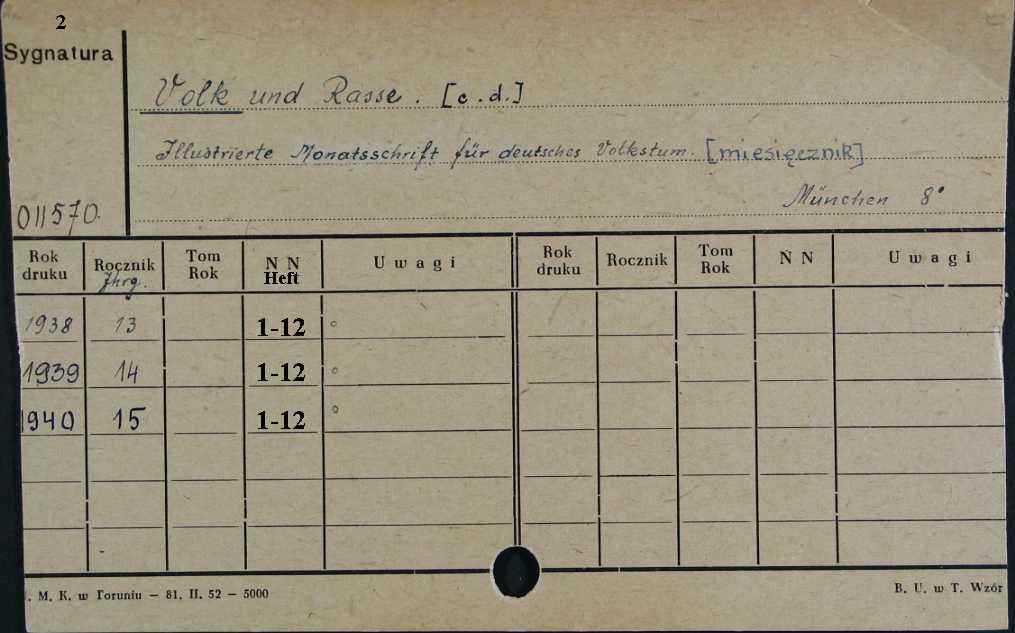 2
Sygnatura
Volk und Rasse. [c.d.]
Illustrierte Monatsschrift für deutsches Volkstum. [miesięcznik]
München 8°
011570.
Rok druku Rocznik Jhrg. Tom Rok N N Heft Uwagi Rok druku Rocznik Tom Rok N N Uwagi
1938 13 1-12 °
1939 14 1-12 °
1940 15 1-12 °
. M. K. w Toruniu – 81. II. 52 – 5000
B. U. w T. Wzór